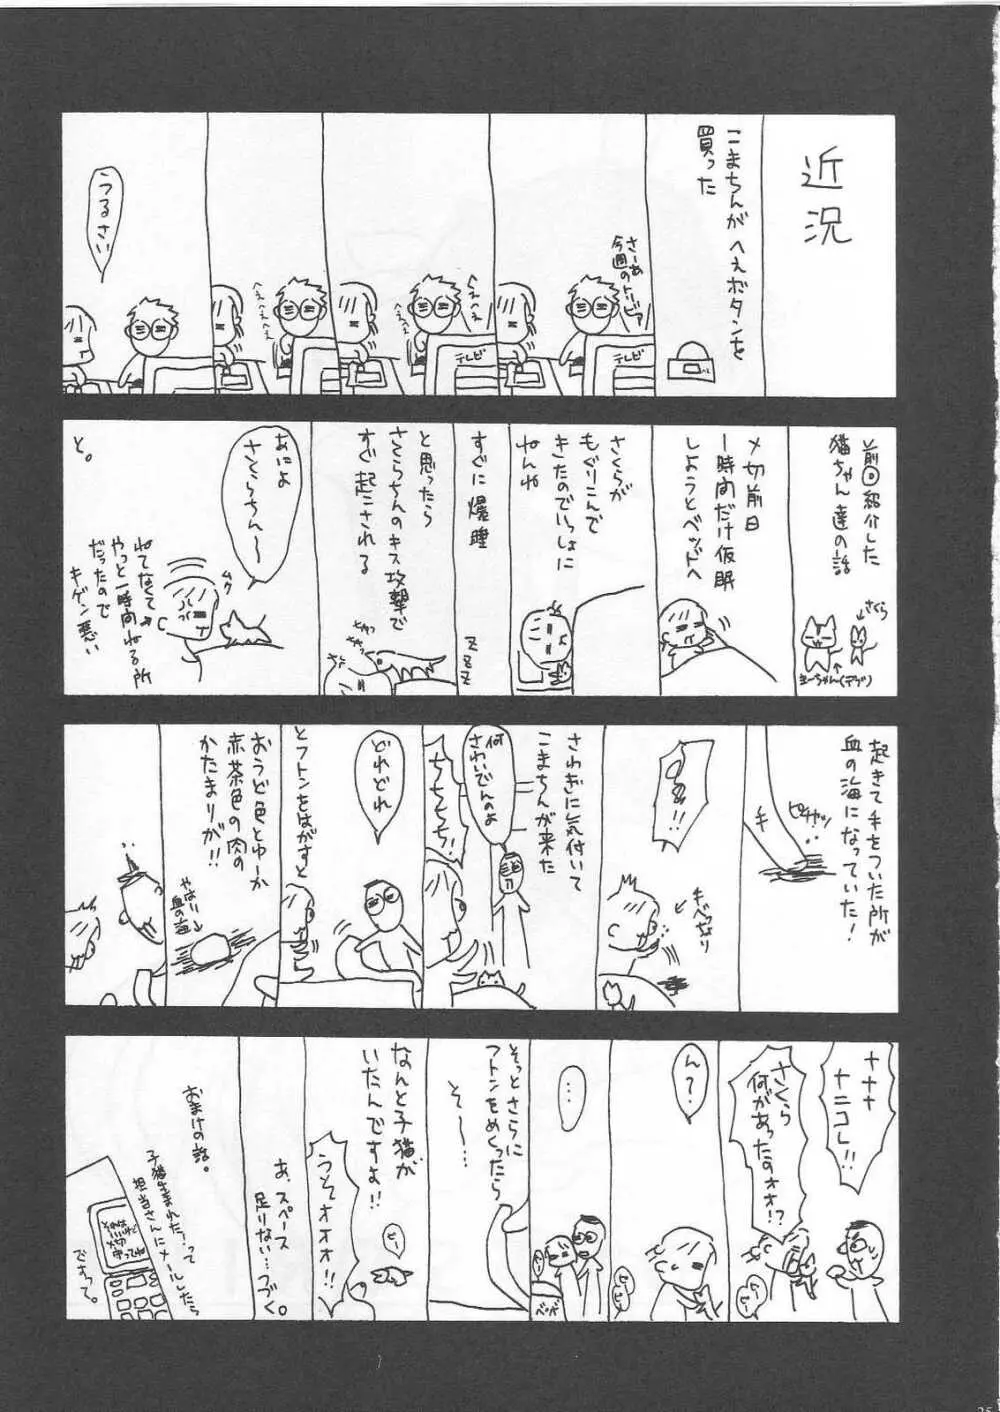 近況
こまちんがへぇボタンを
買った
さーあ
今週のトリビア
テレビ
へぇへぇ
テレビ
へぇへぇへぇ
へぇへぇへぇ
うるさい
前回紹介した
猫ちゃん達の話
さくら
まーちゃん(デブ)
〆切前日
一時間だけ仮眠
しようとベッドへ
さくらが
もぐりこんで
きたのでいっしょに
ねんね
すぐに爆睡
ZZZ
と思ったら
さくらちんのキス攻撃で
すぐ起こされる
あによ
さくらちん〜
ムク
ねてなくて
やっと一時間ねる所
だったので
キゲン悪い
と。
起きて手をついた所が
血の海になっていた!
ピチャッ
手
ギャーなり
さわぎに気付いて
こまちんが来た
何
さわいでんのよ
ちちちち!
どれどれ
とフトンをはがすと
おうど色とゆーか
赤茶色の肉の
かたまりが!!
やはり
血の海
ナナナ
ナニコレ!!
さくら
何があったのォォ!?
ん?
…
ベッド
そっとさらに
フトンをめくったら
そ〜…
なんと子猫が
いたんですよ!!
ピー
うっそオオオ!!
あ、スペース
足りない…つづく。
おまけの話。
子猫生まれた!って
担当さんにメールしたら
ですって。
25